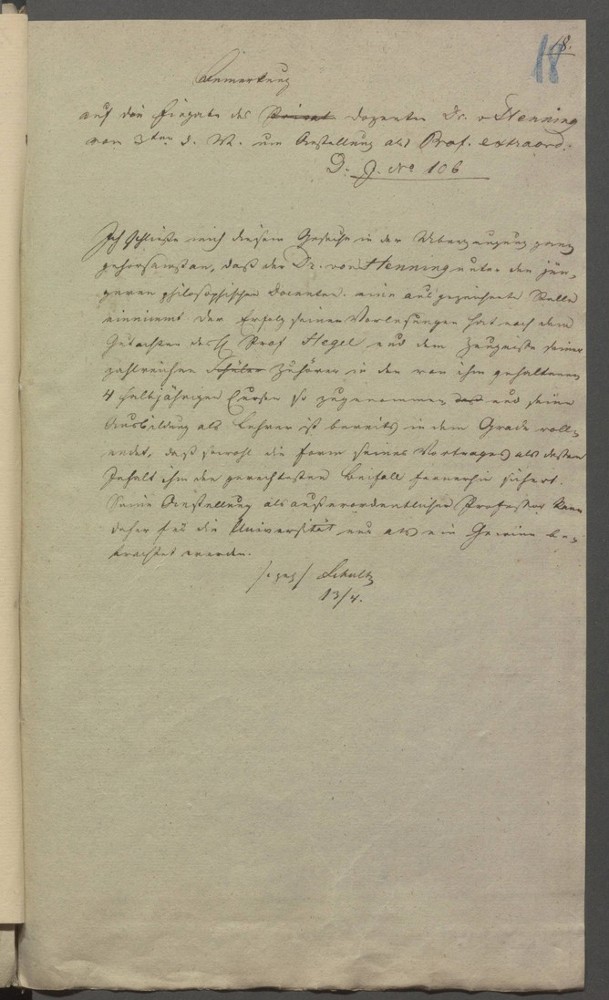 18.
18
Anmerkung
auf die Eingabe des Privat Dozenten Dr. v Henning
vom 3ten d. M. um Anstellung als Prof. extraord:
D: J. No 106
Ich schließe mich diesem Gesuche in der Ueberzeugung ganz
gehorsamst an, daß der Dr. von Henning unter den jün,
geren philosophischen Docenten eine ausgezeichnete Stelle
einnimmt. Der Erfolg seiner Vorlesungen hat nach dem
Gutachten des H Prof Hegel und dem Zeugniße seiner
zahlreichen Schüler Zuhörer in den von ihm gehaltenen
4 halbjährigen Cursen so zugenommen und seine
Ausbildung als Lehrer ist bereits in dem Grade voll,
endet, daß sowohl die Form seines Vortrages als dessen
Inhalt ihm den gerechtesten Beifall fernerhin sichert.
Seine Anstellung als außerordentlicher Professor kann
daher für die Universität nur als ein Gewinn be,
trachtet werden.
/:gez:/ Schultz
13/4.